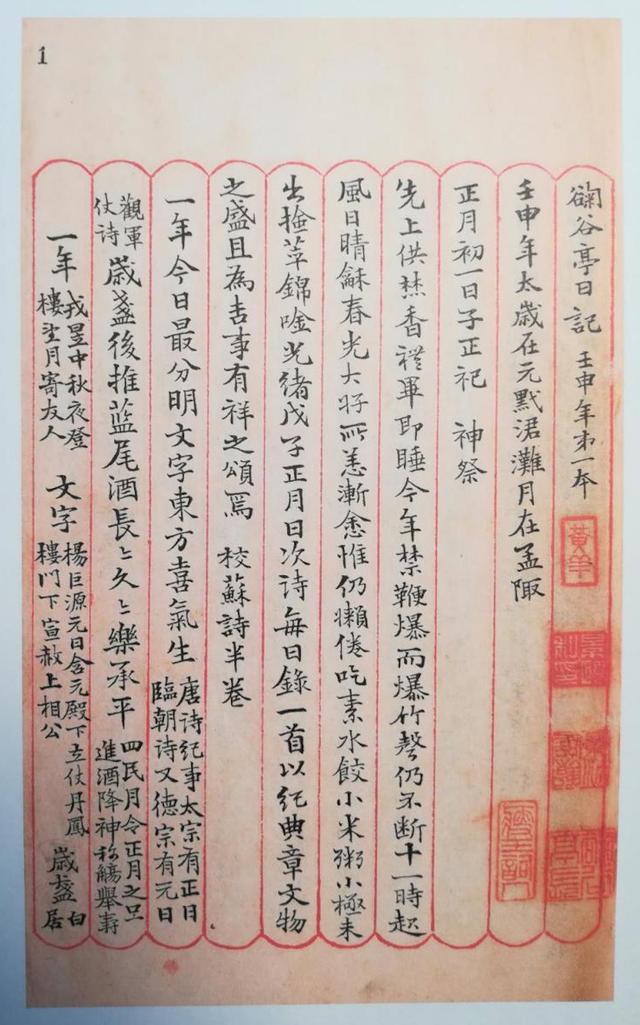 1
谷亭日記 壬申年弟一本
黃羊
壬申年太歲在元黓涒灘月在孟陬
正月初一日子正祀 神祭
先上供焚香禮畢即睡今年禁鞭爆而爆竹聲仍不斷十一時起
風日晴龢春光大好所恙漸愈惟仍懶倦吃素水餃小米粥小極未
出撿萃錦唫光緒戊子正月日次詩每日錄一首以紀典章文物
之盛且為吉事有祥之頌焉 校蘇詩半卷
一年今日最分明文字東方喜氣生 唐詩紀事太宗有正日臨朝詩又德宗有元日
觀軍仗詩 歲盞後推藍尾酒長〻久〻樂承平 四民月令正月之旦進酒降神稱觴舉壽
一年 戎昱中秋夜澄樓望月寄友人 文字 楊巨源元日含元殿下立仗丹鳳樓門下宣赦上相公 歲盞 白居